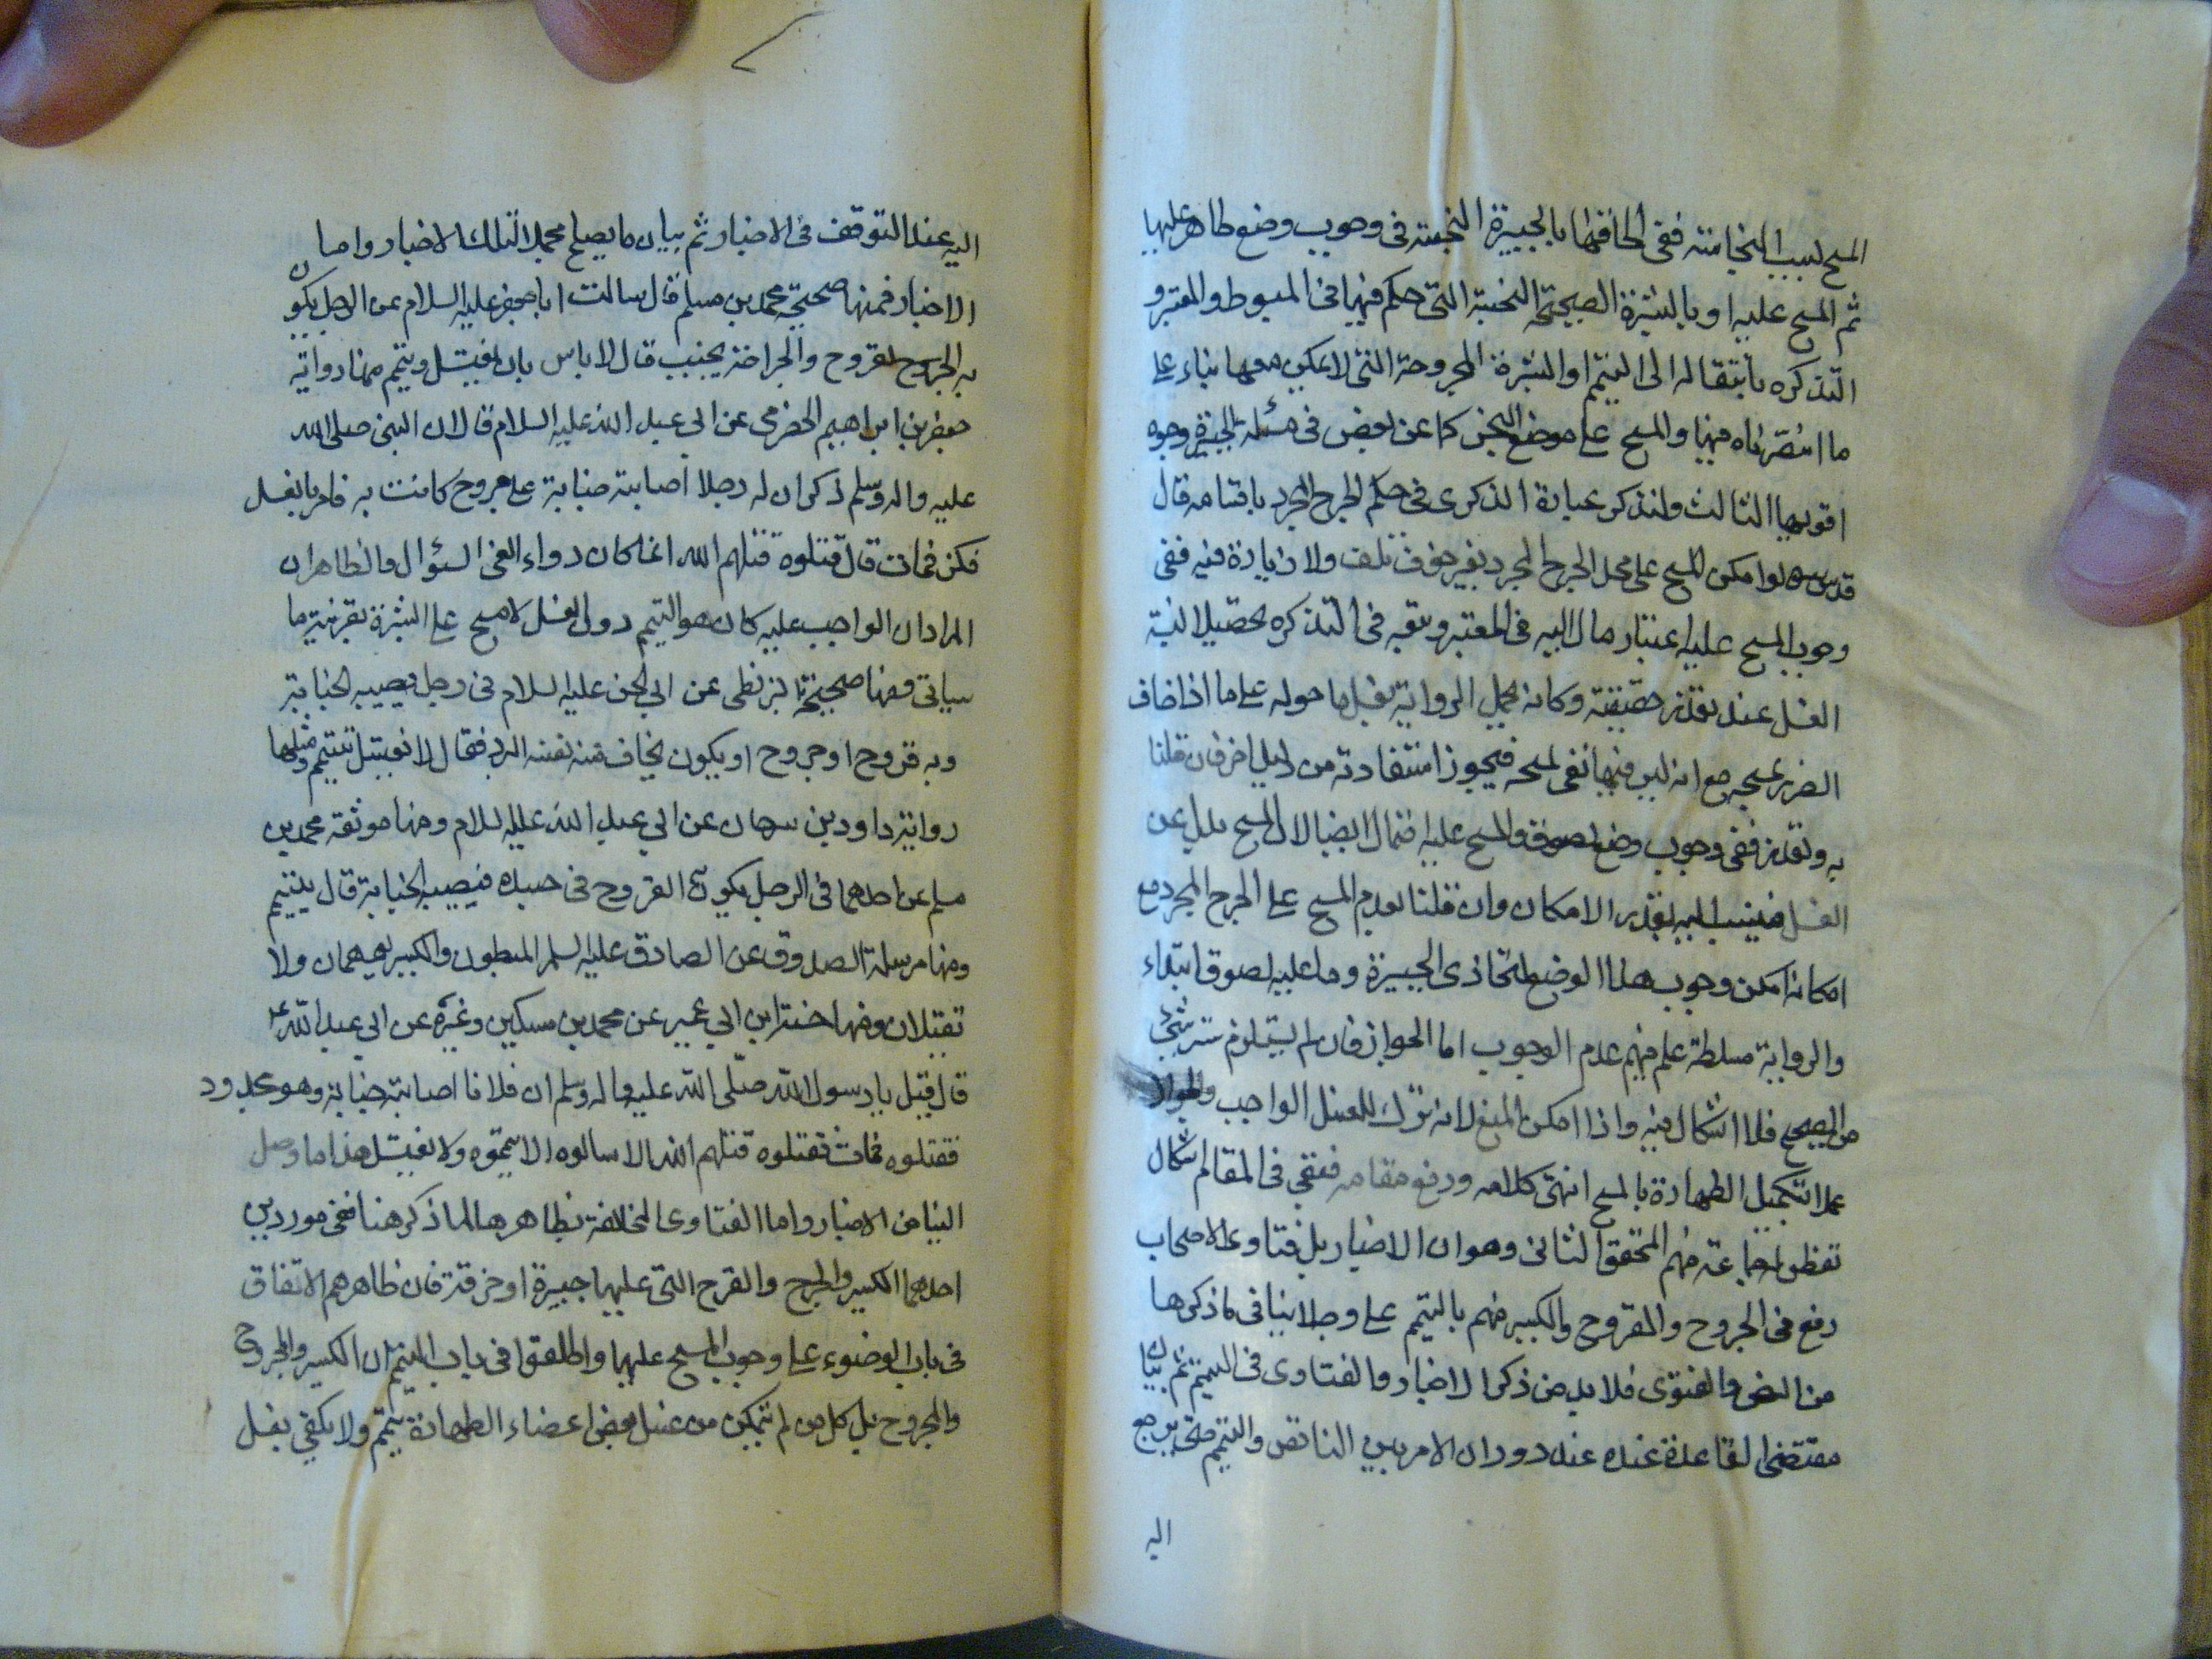 المسح لسبب النجاسته ففى الحاقها بالجبيرة النجسته فى وجوب وضع طاهر عليها
ثم المسح عليه او بالبشرة الصحيحة النجسة التى حكم فيها فى المبسوط والمعتبر و
التذكره بانتقاله الى التيمم او البشرة المجروحة التى لا يمكن معها بناء على
ما اخترناه فيها والمسح على موضع النجس كما عن بعض فى مسئلة الجبيرة وجوه
اقويها الثالث ولنذكر عبارة الذكرى فى حكم الجرح المجرد باقسامه قال
قدس سره لو امكن المسح على محل الجرح المجرد بغير خوف تلف ولا زيادة فيه ففى
وجوب المسح عليه اعتبار مال اليه فى المعتبر وتبعه فى التذكره تحصيلا لشبه
الغسل عند تعذر حقيقته وكانه يحمل الرواية بغسل ما حوله على ما اذا خاف
الضرر بمسحه مع انه ليس فيها نفى لمسحه فيجوز استفادته من دليل اخر فان قلنا
به وتعذر ففى وجوب وضع لصوق والمسح عليه احتمال ايضا لان المسح بدل عن
الغسل فينسب اليه بقدر الامكان وان قلنا بعدم المسح على الجرح المجرد مع
امكانه امكن وجوب هذا الوضع ليحاذى الجبيرة وما عليه لصوق ابتداء
والرواية مسلطة على فهم عدم الوجوب اما الجواز فان لم يستلزم ستر شئ
من الصحيح فلا اشكال فيه واذا امكن المنع لانه ترك للغسل الواجب والجواز
عملا بتكميل الطهارة بالمسح انتهى كلامه ورفع مقامه فبقى فى المقام اشكال
تفطن له جماعة منهم المحقق الثانى وهو ان الاخبار بل فتاوى الاصحاب
دفع فى الجروح والقروح والكسير منهم بالتيمم على وجه لا ينافى ما ذكرها
من النص والفتوى فلا بد من ذكر الاخبار والفتاوى فى التيمم ثم بيان
مقتضى القاعدة عنده عند دوران الامر بين الناقص والتيمم حتى يرجع
اليه
اليه عند التوقف فى الاخبار ثم بيان ما يصلح محملا لتلك الاخبار واما
الاخبار فمنها صحيحة محمد بن مسلم قال سالت ابا جعفر عليه السلام عن الرجل يكون
به القروح والجراحة يجنب قال لا باس بان لا يغتسل ويتيمم ومنها رواية
جعفر بن ابراهيم الجعفرى عن ابى عبد الله عليه السلام قال ان النبى صلى الله
عليه واله وسلم ذكر ان له رجلا اصابته جنابة على جروح كانت به فامر بالغسل
فكز فمات فقال قتلوه قتلهم الله انما كان دواء العى السؤال والظاهر ان
المراد ان الواجب عليه كان هو التيمم دون الغسل لا مسح على البشرة بقرينة ما
سياتى ومنها صحيحة البزنطى عن ابى الحسن عليه السلام فى رجل تصيبه الجنابة
وبه قروح او جروح او يكون يخاف منه نفسه البرد فقال لا يغتسل تيمم ومثلها
رواية داود بن سرحان عن ابى عبد الله عليه السلام ومنها موثقة محمد بن
مسلم عن احدهما فى الرجل يكون به القروح فى جسده فيصيبه الجنابة قال يتيمم
ومنها مرسلة الصدوق عن الصادق عليه السلم المبطون والكسير يؤممان ولا
تغتسلان ومنها حسنة ابن ابى عمير عن محمد بن مسكين وغيره عن ابى عبد الله ع
قال قيل يا رسول الله صلى الله عليه واله وسلم ان فلانا اصابته جنابة وهو مجدور
فغسلوه فمات فقتلوه قتلهم الله الا سالوه الا يمموه ولا يغتسل هذا ما وصل
الينا من الاخبار واما الفتاوى المخالفة بظاهرها لما ذكر هنا ففى موردين
احدهما الكسير والجرح والقرح التى عليها جبيرة او خرقة فان ظاهرهم الاتفاق
فى باب الوضوء على وجوب المسح عليها واطلقوا فى باب التيمم ان الكسير والمجروح
والمجروح بل كل من لم يتمكن من غسل بعض اعضاء الطهارة تيمم ولا يكفى بغسل